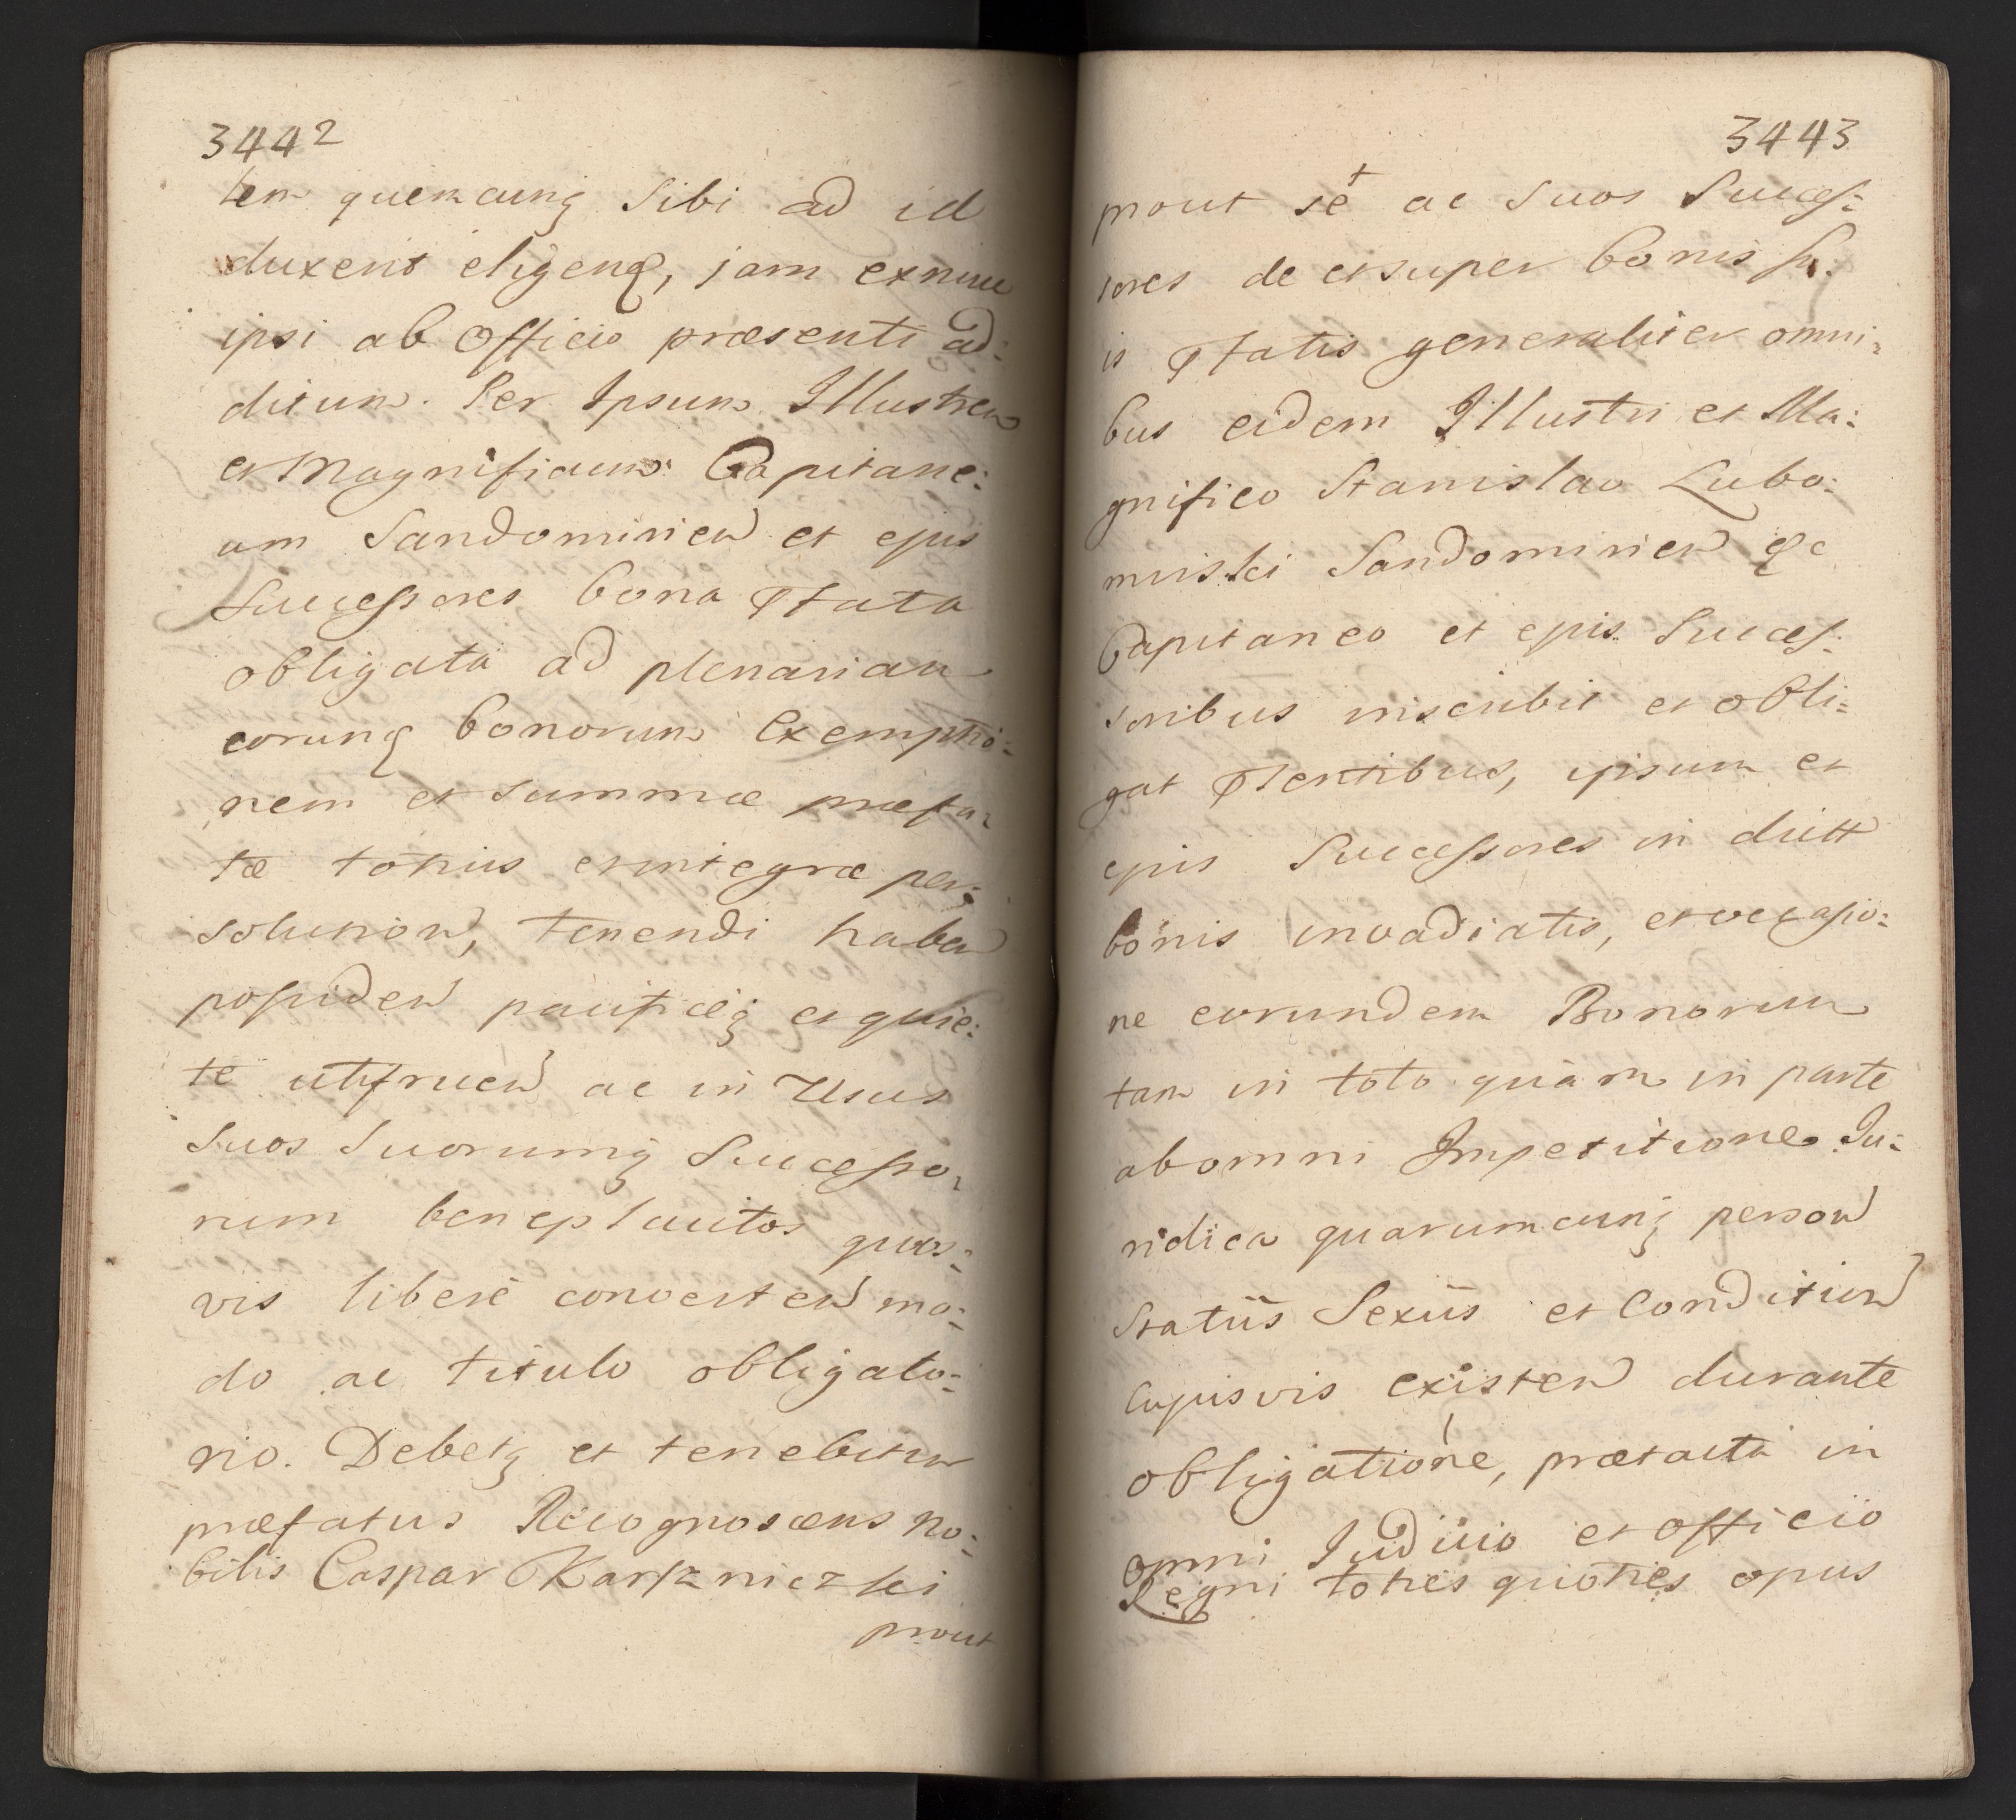 3442
tem quemcunq sibi ad id
duxerit eligend, jam exnunc
ipsi ab Officio præsenti ad:
ditum. Per Ipsum Illustrem
et Magnificum Capitane:
um Sandomirien et ejus
Successores bona Pfata
obligata ad plenariam
eorund bonorum Exemptio:
nem et summæ præfa:
tæ totius et integræ per:
solution, tenendi haben
possiden pacificeq et quie:
te utifruen ac in Usus
suos suorumq Successo:
rum beneplacitos quos:
vis liberè converten mo:
do ac titulo obligato:
rio. Debetq et tenebitur
præfatus Recognoscens No:
bilis Caspar Karszniczki
prout
3443
prout sè ac suos Succes:
sores de et super bonis su:
is Pfatis generaliter omni:
bus eidem Illustri et Ma:
gnifico Stanislao Lubo:
mirski Sandomirien &c
Capitaneo et ejus Succes:
soribus inscribit et obli:
gat Psentibus, ipsum et
ejus Successores in dictt
bonis invadiatis, et occasio:
ne eorundem Bonorum
tam in toto quàm in parte
ab omni Impetitione Ju:
ridica quarumcunq person
Statùs Sexùs et Condition
cujusvis existen durante
obligatione, prætacta in
omni Judicio et officio
Regni toties quoties opus